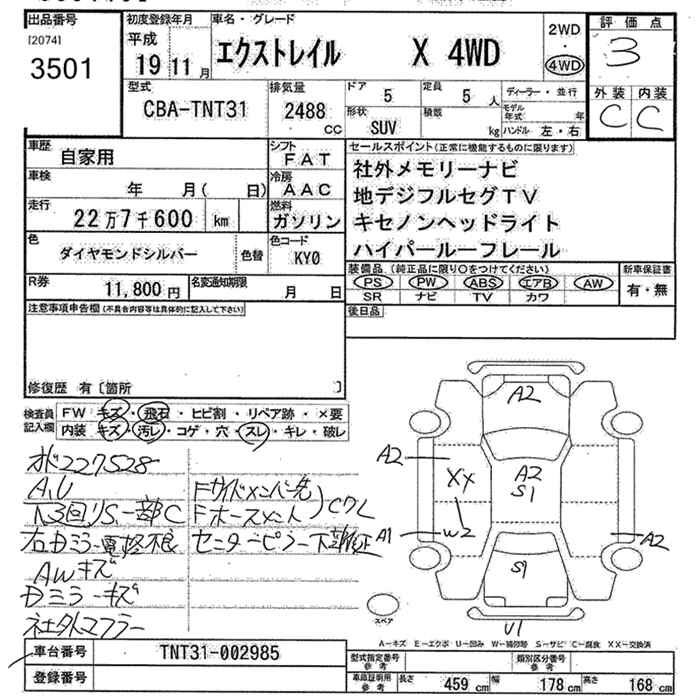 出品番号
[2074]
3501
初度登録年月
平成
19 11月
車名・グレード
エクストレイル X 4WD
2WD
・
4WD
評価点
3
外装 内装
C C
型式
CBA-TNT31
排気量
2488
CC
ドア
5
定員
5 人
形状
SUV
積載
kg
ディーラー・並行
モデル年式 年
ハンドル 左・右
車歴
自家用
シフト
FAT
車検
年 月( 日)
冷房
AAC
走行
22万7千600 km
燃料
ガソリン
色
ダイヤモンドシルバー
色替
色コード
KY0
R券
11,800円
名変通知期限
月 日
セールスポイント(正常に機能するものに限ります)
社外メモリーナビ
地デジフルセグTV
キセノンヘッドライト
ハイパールーフレール
装備品 (純正品に限り○をつけてください)
新車保証書
PS PW ABS エアB AW
SR ナビ TV カワ
有・無
後日品
注意事項申告欄(不具合内容等は具体的に記入して下さい)
修復歴 有〔箇所 〕
検査員記入欄
FW キズ・飛石・ヒビ割・リペア跡・×要
内装 キズ・汚レ・コゲ・穴・スレ・キレ・破レ
227528
A,U
右ドミラー電格不良
AWキズ
Dミラーキズ
社外マフラー
Fサイドメンバー先
センターピラー下部修正
A2
A2
XX
A2
S1
A1
W2
A2
S1
U1
スペア
A-キズ E-エクボ U-凹み W-補修跡 S-サビ C-腐食 XX-交換済
車台番号
TNT31-002985
登録番号
型式指定番号
参考
類別区分番号
参考
車庫証明用
参考
長さ 459 cm 幅 178 cm 高さ 168 cm